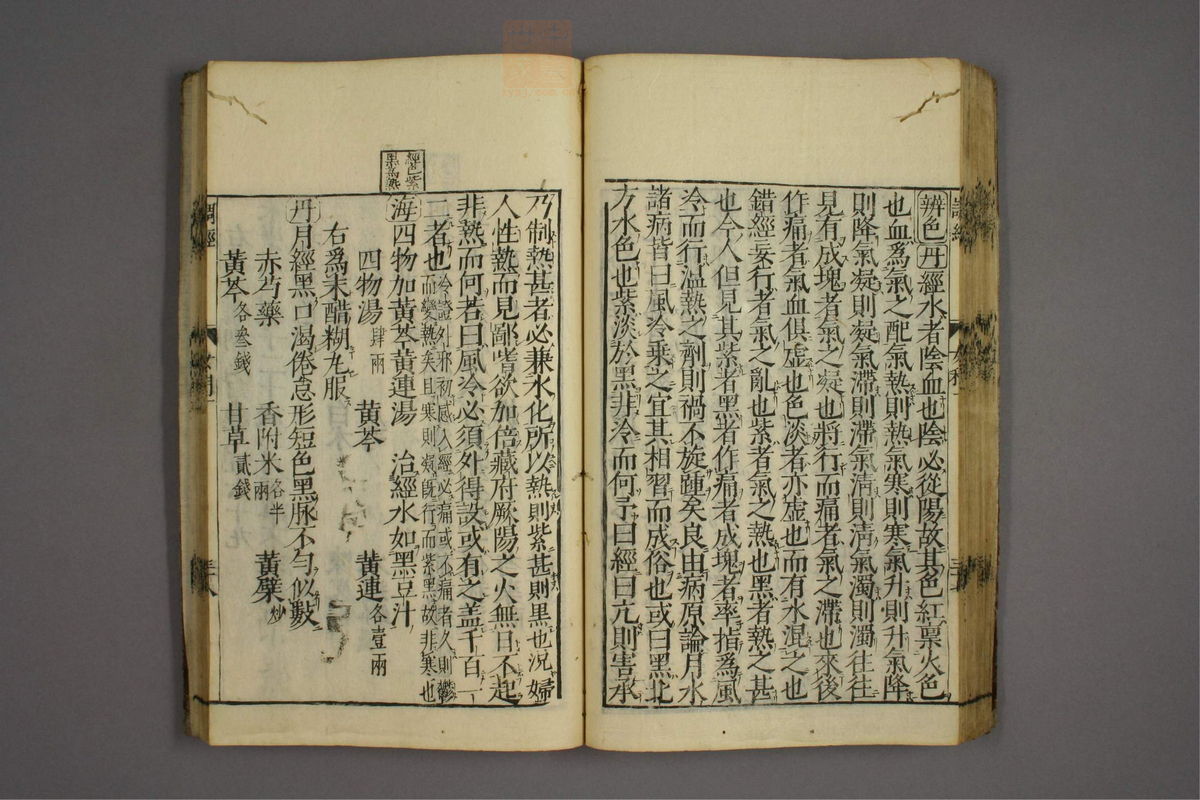 辨色丹經水者陰血也陰必從陽故其色紅稟火色
也血爲氣之配氣熱則熱氣寒則寒氣升則升氣降
則降氣凝則凝氣滯則滯氣清則清氣濁則濁往往
見有成塊者氣之凝也將行而痛者氣之滯也來後
作痛者氣血俱虛也色淡者亦虛也而有水混之也
錯經妄行者氣之亂也紫者氣之熱也黑者熱之甚
也今人但見其紫者黑者作痛者成塊者率指爲風
冷而行温熱之劑則禍不旋踵矣良由病原論月水
諸病皆曰風冷乘之宜其相習而成俗也或曰黑北
方水色也紫淡於黑非冷而何予曰經曰亢則害承
乃制熱甚者必兼水化所以熱則紫甚則黑也況婦
人性熱而見鄙嗜欲加倍藏府厥陽之火無日不起
非熱而何若曰風冷必須外得設或有之盖千百一
二者也冷證外邪初感入經必痛或不痛者久則鬱
而變熱矣且寒則凝既行而紫黑故非寒也
經色紫
黑爲熱
海四物加黃芩黃連湯 治經水如黑豆汁
四物湯肆兩 黃芩 黃連各壹兩
右爲末醋糊丸服
丹月經黑口渴倦怠形短色黑脉不勻似數
赤芍藥 香附米各半兩 黃檗炒
黃芩各叁錢 甘草貳錢
調經